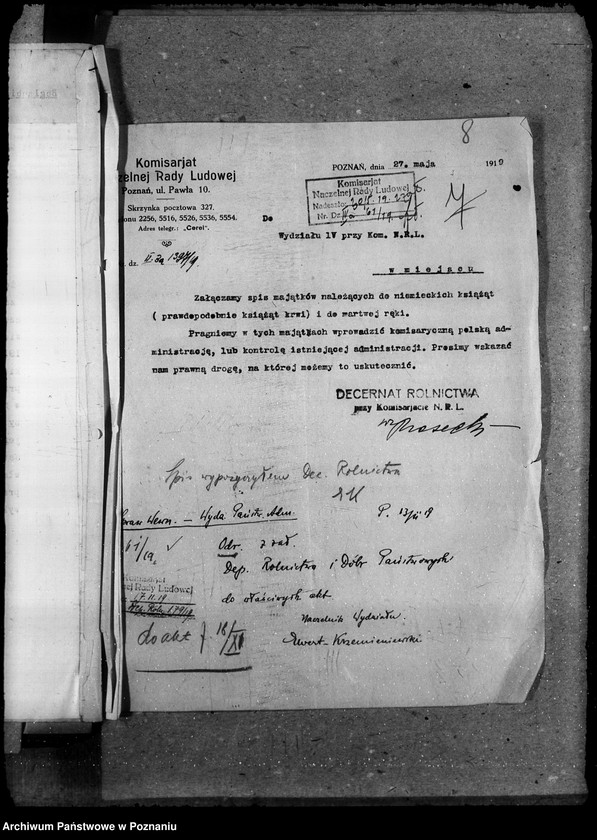 8
Komisarjat
zelnej Rady Ludowej
Poznań, ul. Pawła 10.
Skrzynka pocztowa 327.
onu 2256, 5516, 5526, 5536, 5554.
Adres telegr.: „Carol“.
dz.
POZNAŃ, dnia 27. maja 1919
Komisarjat
Naczelnej Rady Ludowej
Nadeszło:
Nr. Dz.
Do
Wydziału lV przy Kom. N.R.L.
w miejscu
Załączamy spis majątków należących do niemieckich książąt
( prawdopodobnie książąt krwi) i do martwej ręki.
Pragniemy w tych majątkach wprowadzić komisaryczną polską ad-
ministrację, lub kontrolę istniejącej administracji. Prosimy wskazać
nam prawną drogę, na której możemy to uskutecznić.
DECERNAT ROLNICTWA
przy Komisarjacie N. R. L.
Spis wypożyczyłem Dec. Rolnictwa
Wewn. — Wydz Państw. Adm.
P.
Odr. z zał.
Dep. Rolnictwa i Dóbr Państwowych
do właściwych akt
Naczelnik Wydziału.
Ewert-Krzemieniewski
Komisarjat
nej Rady Ludowej
do akt
Archiwum Państwowe w Poznaniu